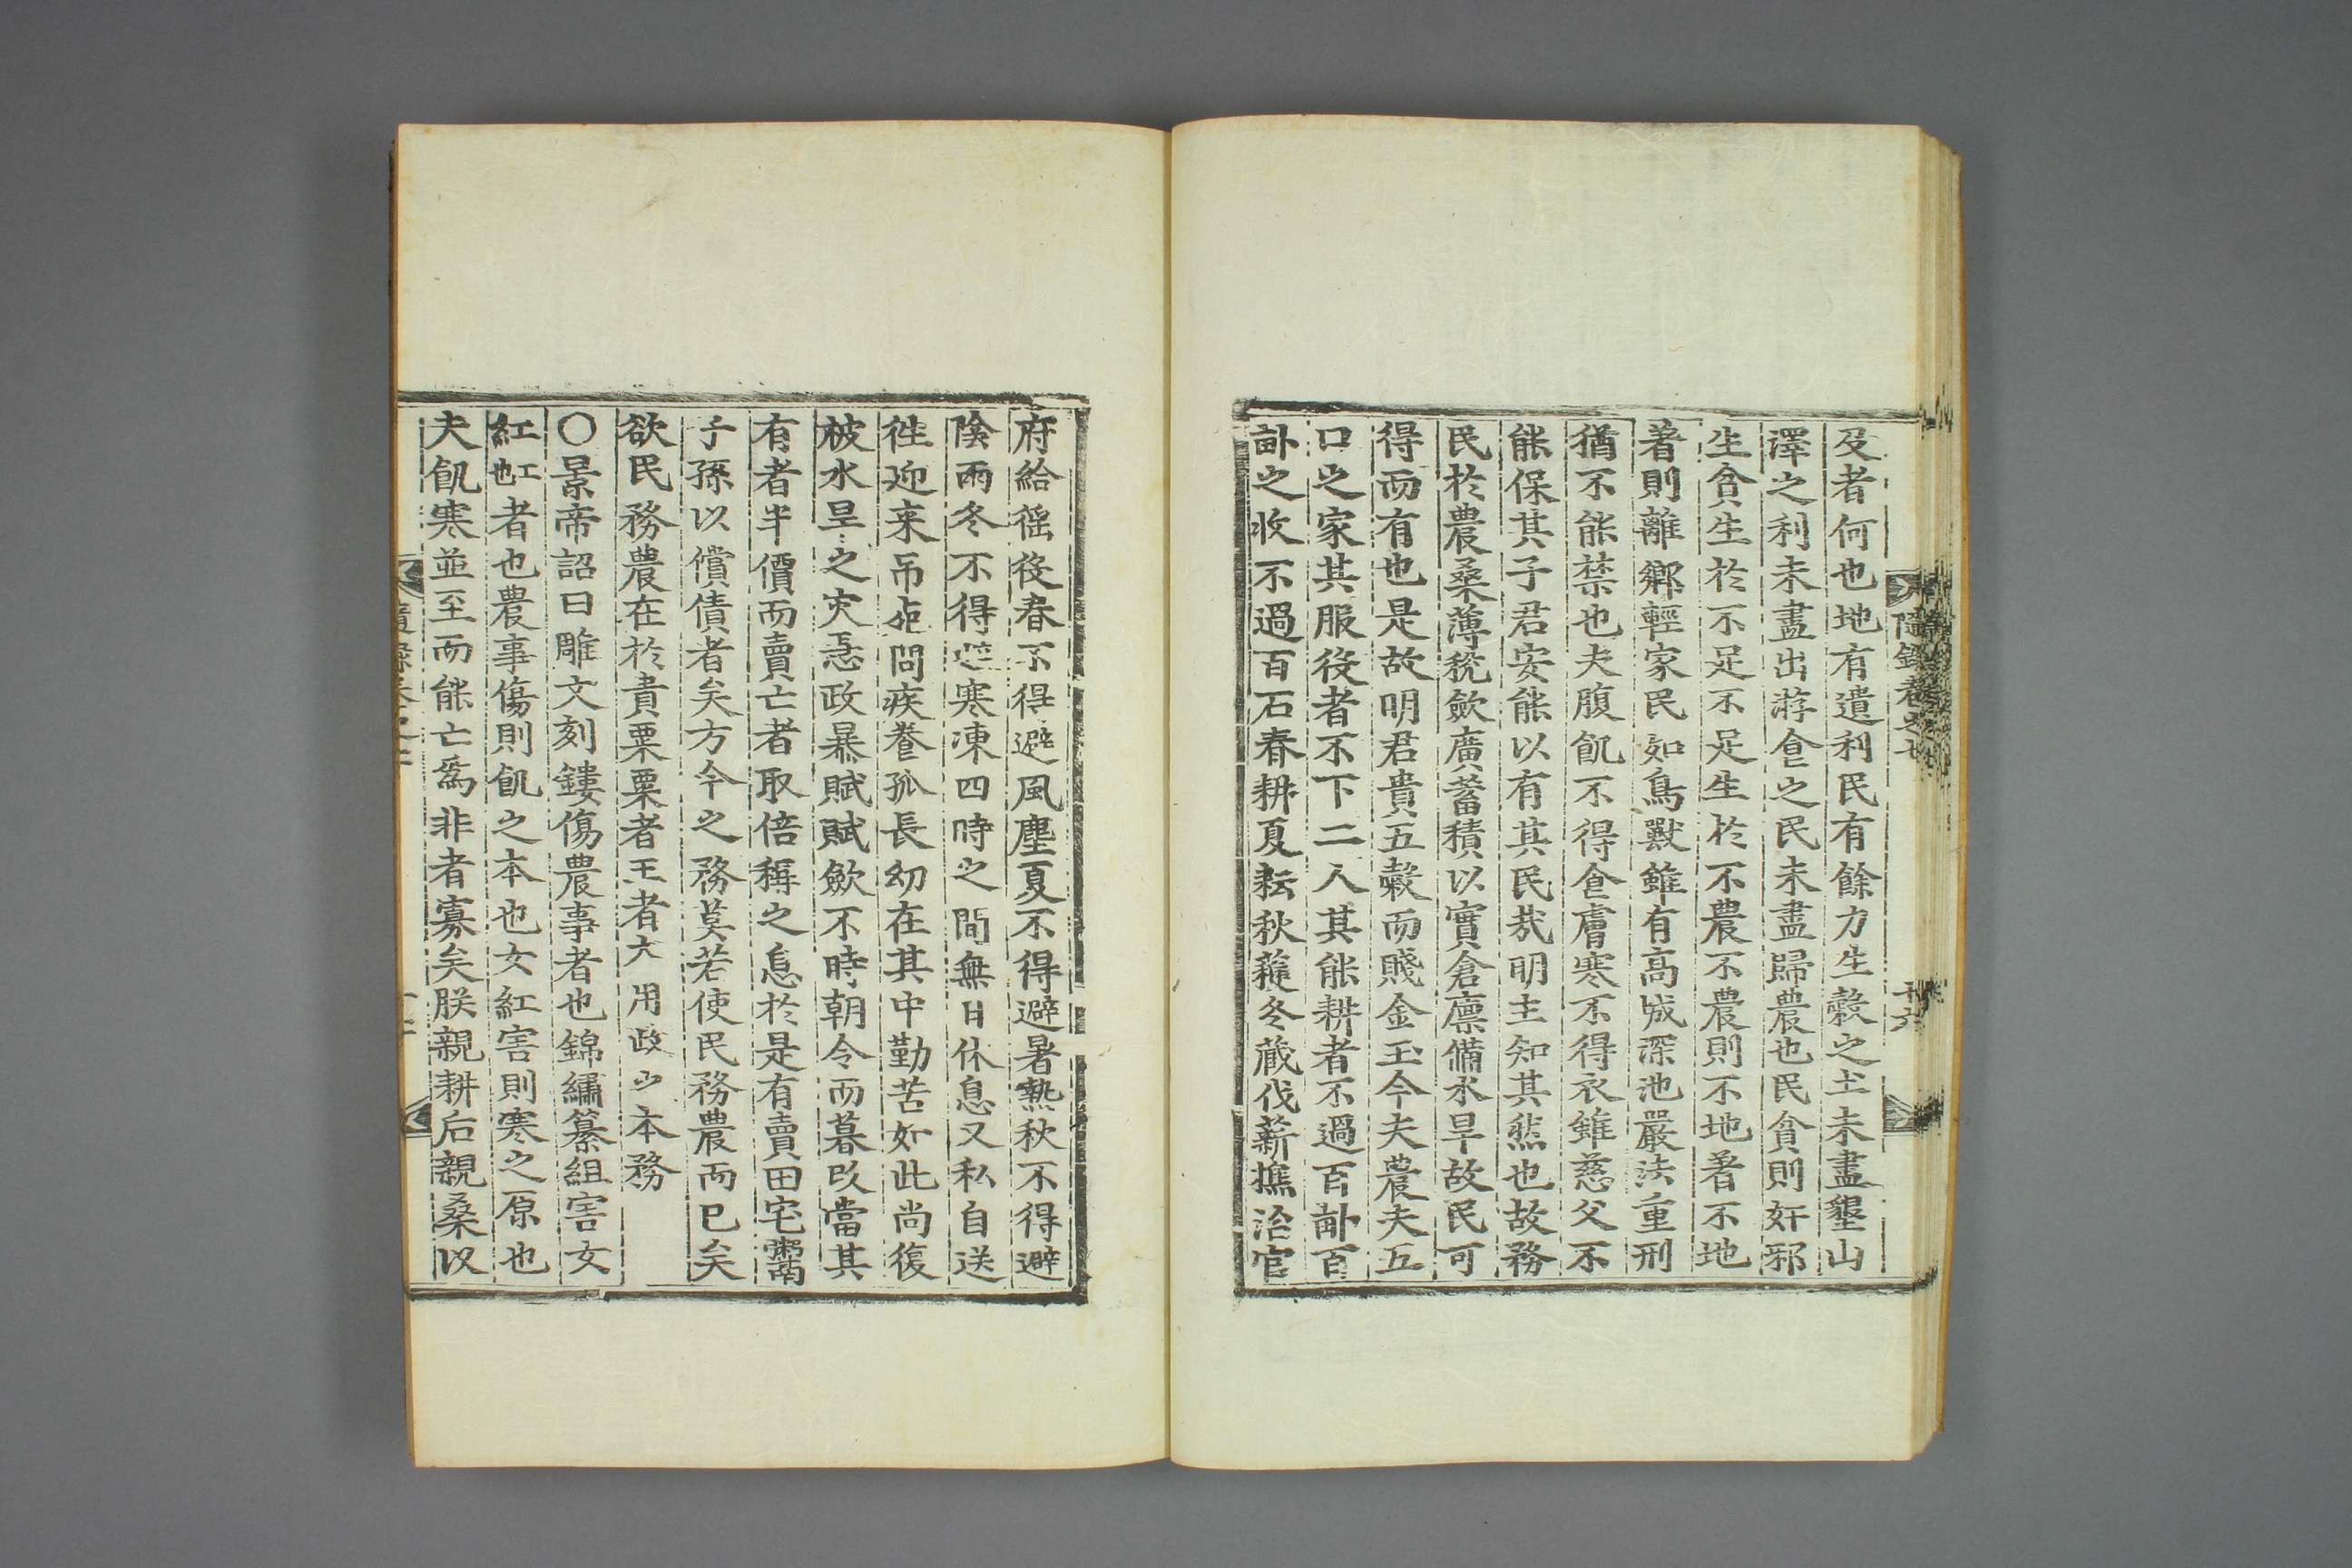 及者何也地有遺利民有餘力生穀之土未盡墾山
澤之利未盡出游食之民未盡歸農也民貧則奸邪
生貪生於不足不足生於不農不農則不地著不地
著則離鄉輕家民如鳥獸雖有高城深池嚴法重刑
猶不能禁也夫腹飢不得食膚寒不得衣雖慈父不
能保其子君安能以有其民哉明主知其然也故務
民於農桑薄稅斂廣蓄積以實倉廩備水旱故民可
得而有也是故明君貴五穀而賤金玉今夫農夫五
口之家其服役者不下二人其能耕者不過百畝百
畝之收不過百石春耕夏耘秋穫冬藏伐薪樵治官
府給徭役春不得避風塵夏不得避暑熱秋不得避
陰雨冬不得避寒凍四時之間無日休息又私自送
徃迎来吊死問疾養孤長幼在其中勤苦如此尚復
被水旱之灾急政暴賦賦斂不時朝令而暮改當其
有者半價而賣亡者取倍稱之息於是有賣田宅粥
子孫以償債者矣方今之務莫若使民務農而已矣
欲民務農在於貴粟粟者王者大用政之本務
○景帝詔曰雕文刻鏤傷農事者也錦繡纂組害女
紅者也農事傷則飢之本也女紅害則寒之原也
夫飢寒並至而能亡爲非者寡矣朕親耕后親桑以